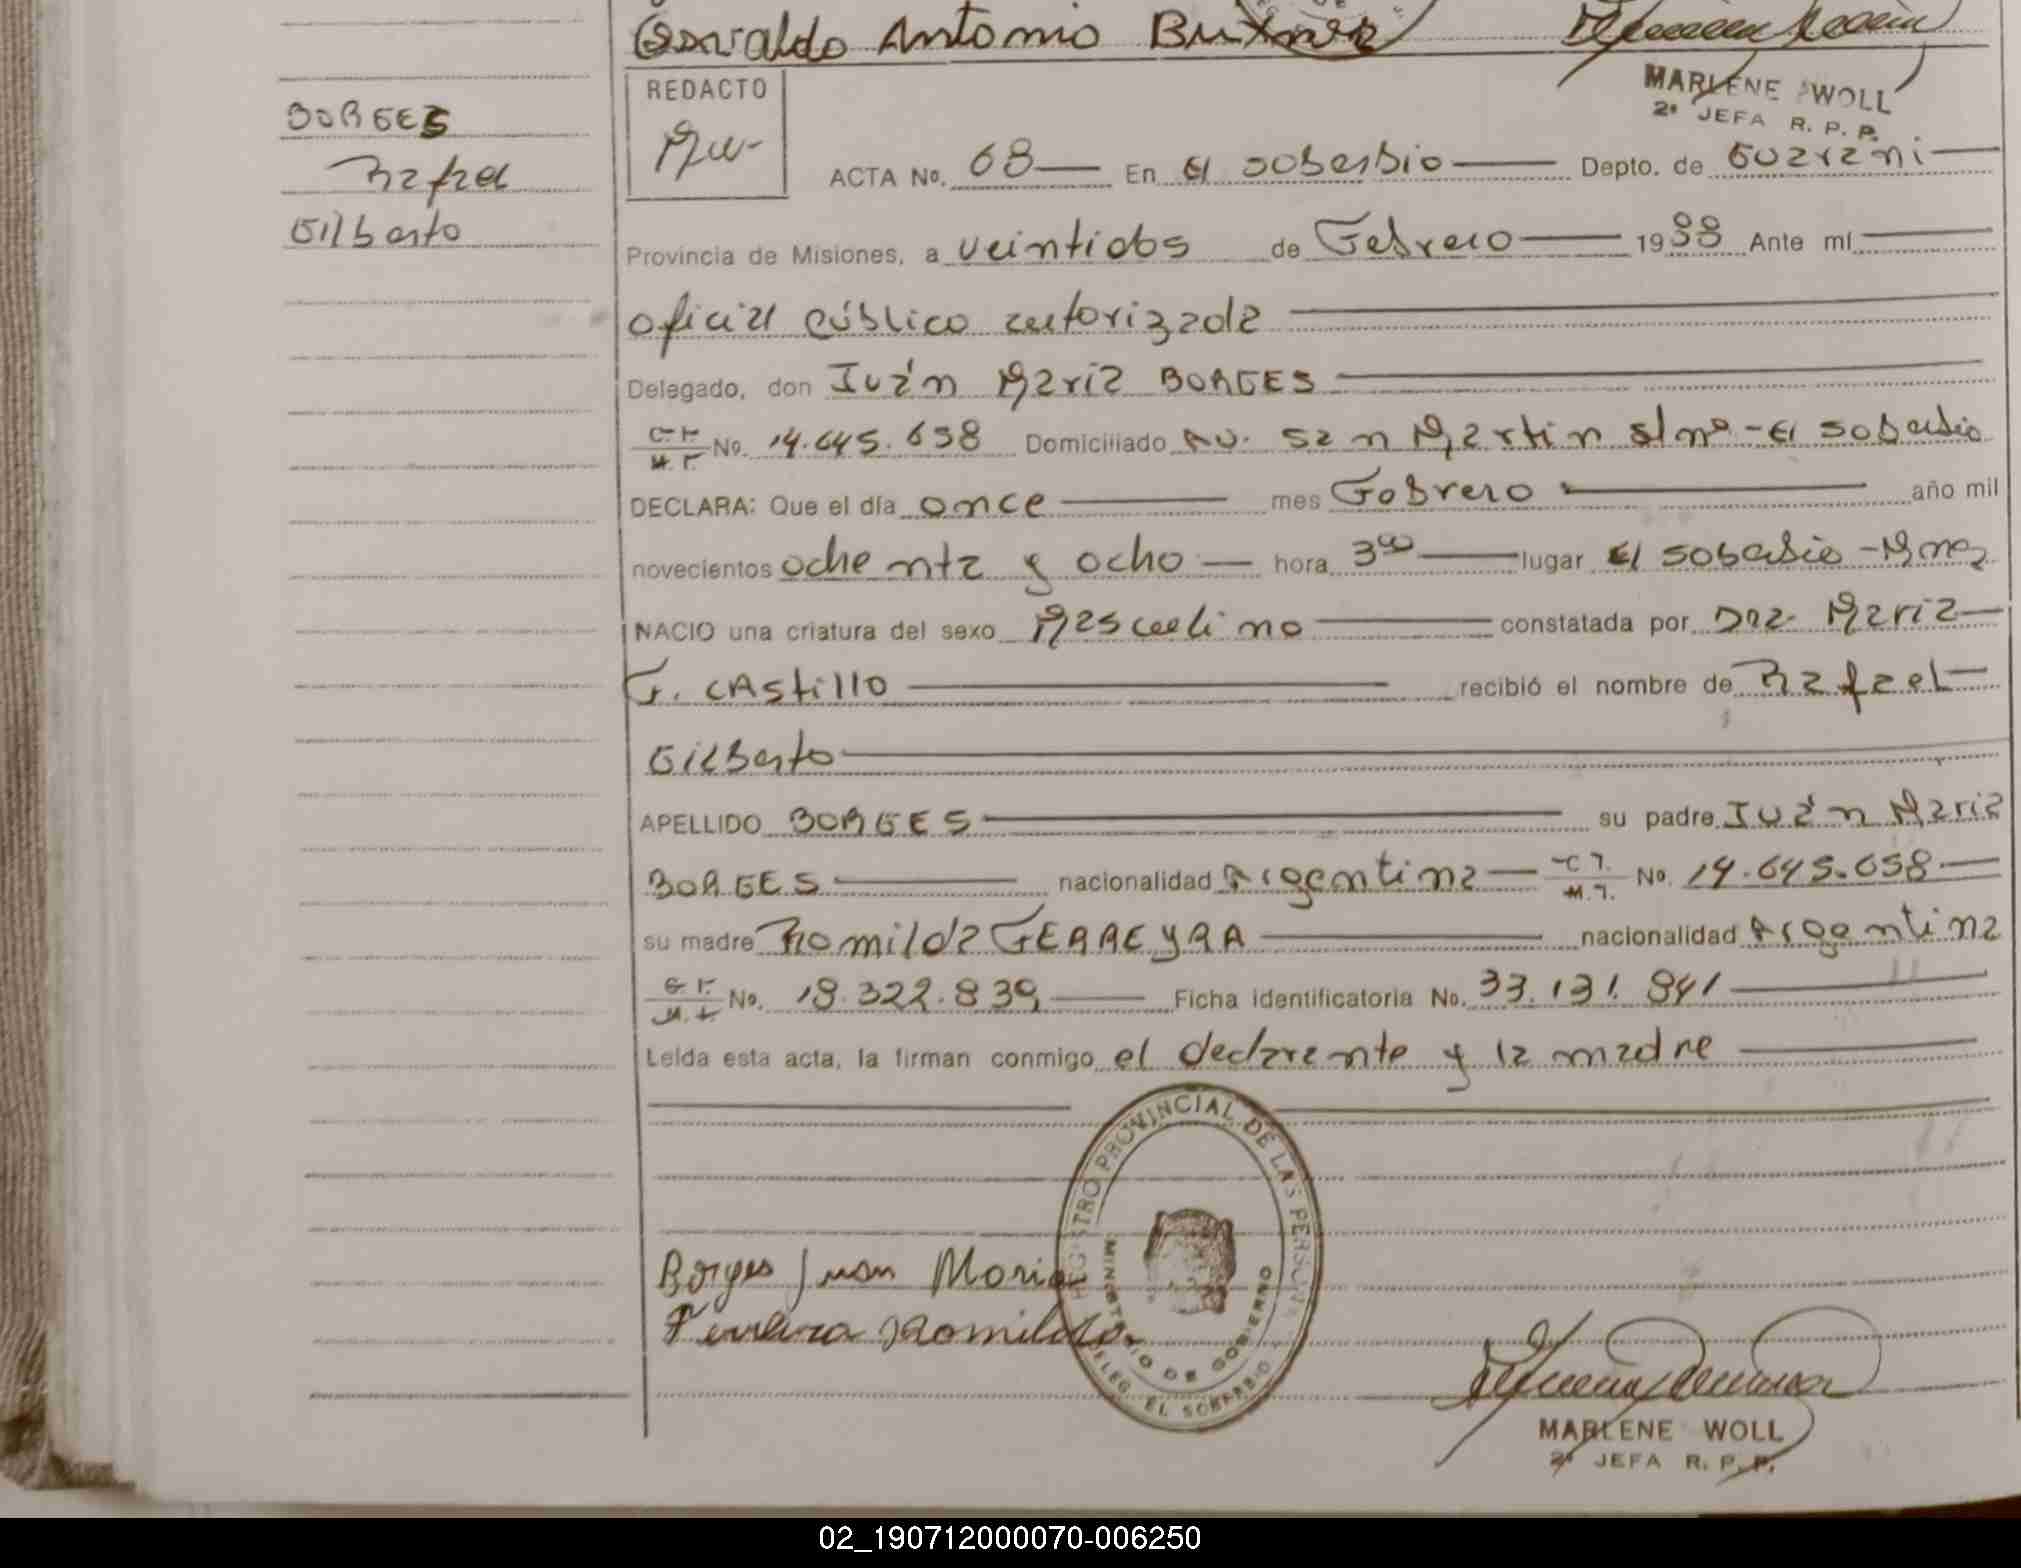 Osvaldo Antonio
MARLENE WOLL
2º JEFA R. P. P.
BORGES
Rafael
Gilberto
REDACTO
ACTA No. 68 En El Soberbio Depto. de Guaraní
Provincia de Misiones, a veintidos de Febrero 1988 Ante mí
oficial público autorizada
Delegado, don Juán María BORGES
C.I. M.I. No. 14.645.658 Domiciliado Av. San Martín s/nº - El Soberbio
DECLARA: Que el día once mes Febrero año mil
novecientos ochenta y ocho hora 3⁰⁰ lugar El Soberbio - Mnes
NACIO una criatura del sexo Masculino constatada por Dña. María
F. CAStillo recibió el nombre de Rafael
Gilberto
APELLIDO BORGES su padre Juán María
BORGES nacionalidad Argentina C.I. M.I. No. 14.645.658
su madre Romilda FERREYRA nacionalidad Argentina
C.I. M.I. No. 18.322.839 Ficha identificatoria No. 33.131.841
Leída esta acta, la firman conmigo el declarante y la madre
REGISTRO PROVINCIAL DE LAS PERSONAS
MINISTERIO DE GOBIERNO
DELEG. EL SOBERBIO
Borges Juan Maria
Ferreira Romilda
MARLENE WOLL
2º JEFA R. P. P.
02_190712000070-006250